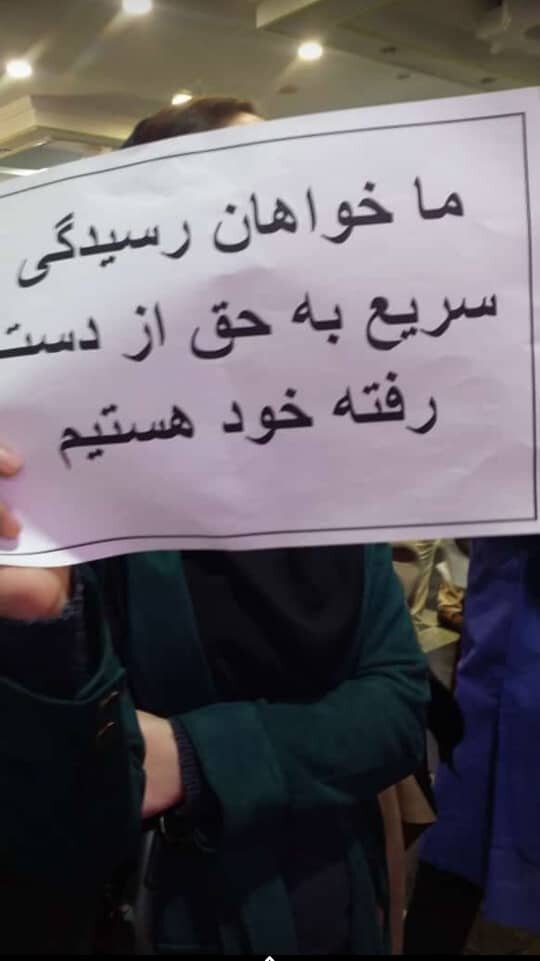 ما خواهان رسیدگی
سریع به حق از دست
رفته خود هستیم